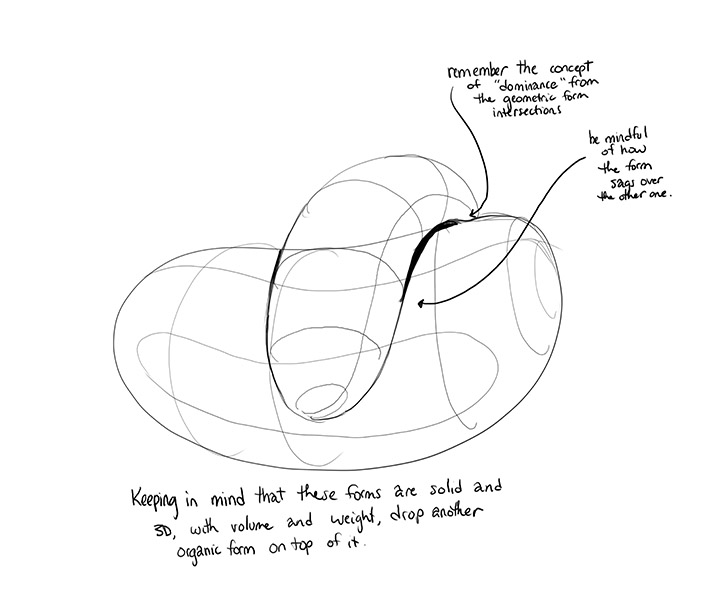 remember the concept
of "dominance" from
the geometric form
intersections
be mindful
of how
the form
sags over
the other one.
Keeping in mind that these forms are solid and
3D, with volume and weight, drop another
organic form on top of it.